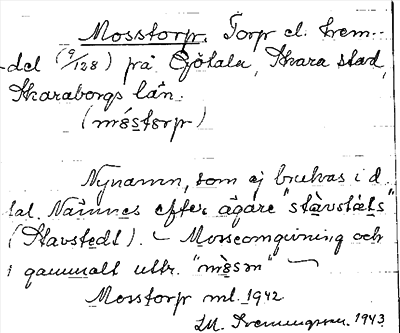 Mosstorp. Torp el. hem-
del (9/128) på Götala, Skara stad,
Skaraborgs län.
(mȯ́storp)
Nynamn, som ej brukas i d.
tal. Nämnes efter ägare "stàvstɛts"
(Stavstedt). – Mosseomgivning och
i gammalt uttr. "mòsɘn"
Mosstorp ml. 1942
1943